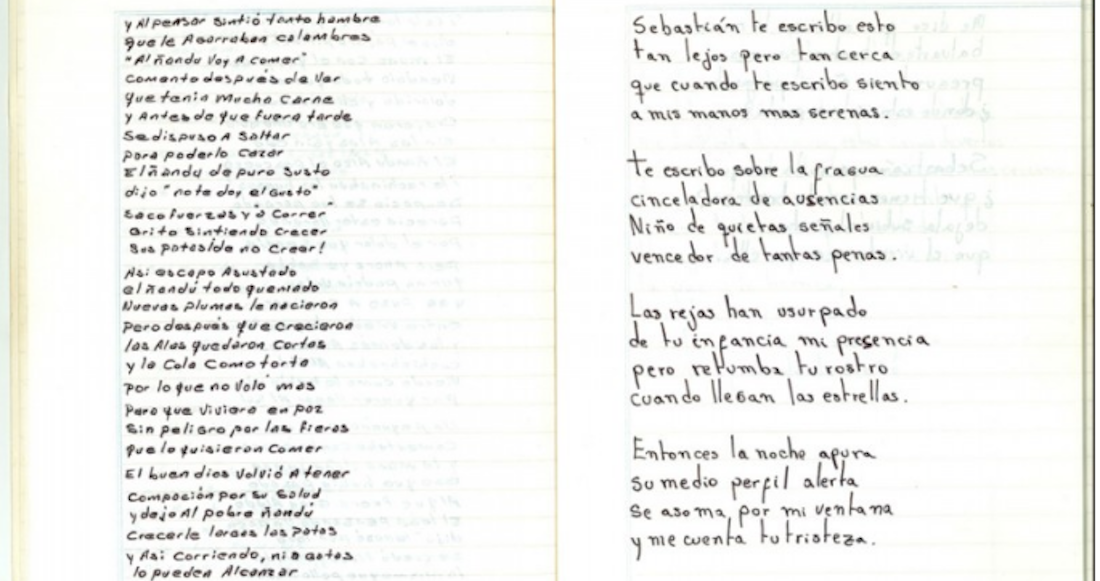 y Al pensar sintió tanto hambre
que le Agarraban calambres
"Al ñandú Voy A comer"
Comento después de Ver
que tenia Mucha Carne
y Antes de que fuera tarde
Se dispuso A Saltar
para poderlo Cazar
El ñandú de puro Susto
dijo "no te doy el Gusto"
Saco fuerzas y a Correr
Grito Sintiendo Crecer
Sus patas ¡de no Creer!
Asi escapo Asustado
el ñandú todo quemado
Nuevas plumas le nacieron
Pero después que Crecieron
las Alas quedaron Cortas
y la Cola Como torta
por lo que no Voló mas
Para que Viviera en paz
Sin peligro por las fieras
que lo quisieron Comer
El buen dios Volvió A tener
Compoción por su Salud
y dejo Al pobre ñandú
Crecerle largas las patas
y Asi Corriendo, ni a gatas
lo pueden Alcanzar
Sebastián te escribo esto
tan lejos pero tan cerca
que cuando te escribo siento
a mis manos mas serenas.
Te escribo sobre la fragua
cinceladora de ausencias
Niño de quietas señales
vencedor de tantas penas.
Las rejas han usurpado
de tu infancia mi presencia
pero retumba tu rostro
cuando llegan las estrellas.
Entonces la noche apura
su medio perfil alerta
Se asoma por mi ventana
y me cuenta tu tristeza.